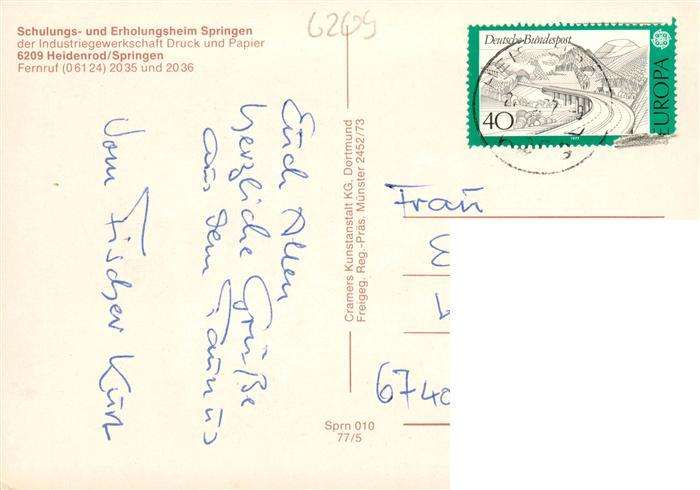 Schulungs- und Erholungsheim Springen
der Industriegewerkschaft Druck und Papier
6209 Heidenrod/Springen
Fernruf (0 61 24) 20 35 und 20 36
6209
Euch Allen
herzliche Grüße
aus dem Taunus
Vom Fischer Kurt
Cramers Kunstanstalt KG. Dortmund
Freigeg. Reg.-Präs. Münster 2452/73
Sprn 010
77/5
Deutsche Bundespost
40
EUROPA
1977
Frau
6740